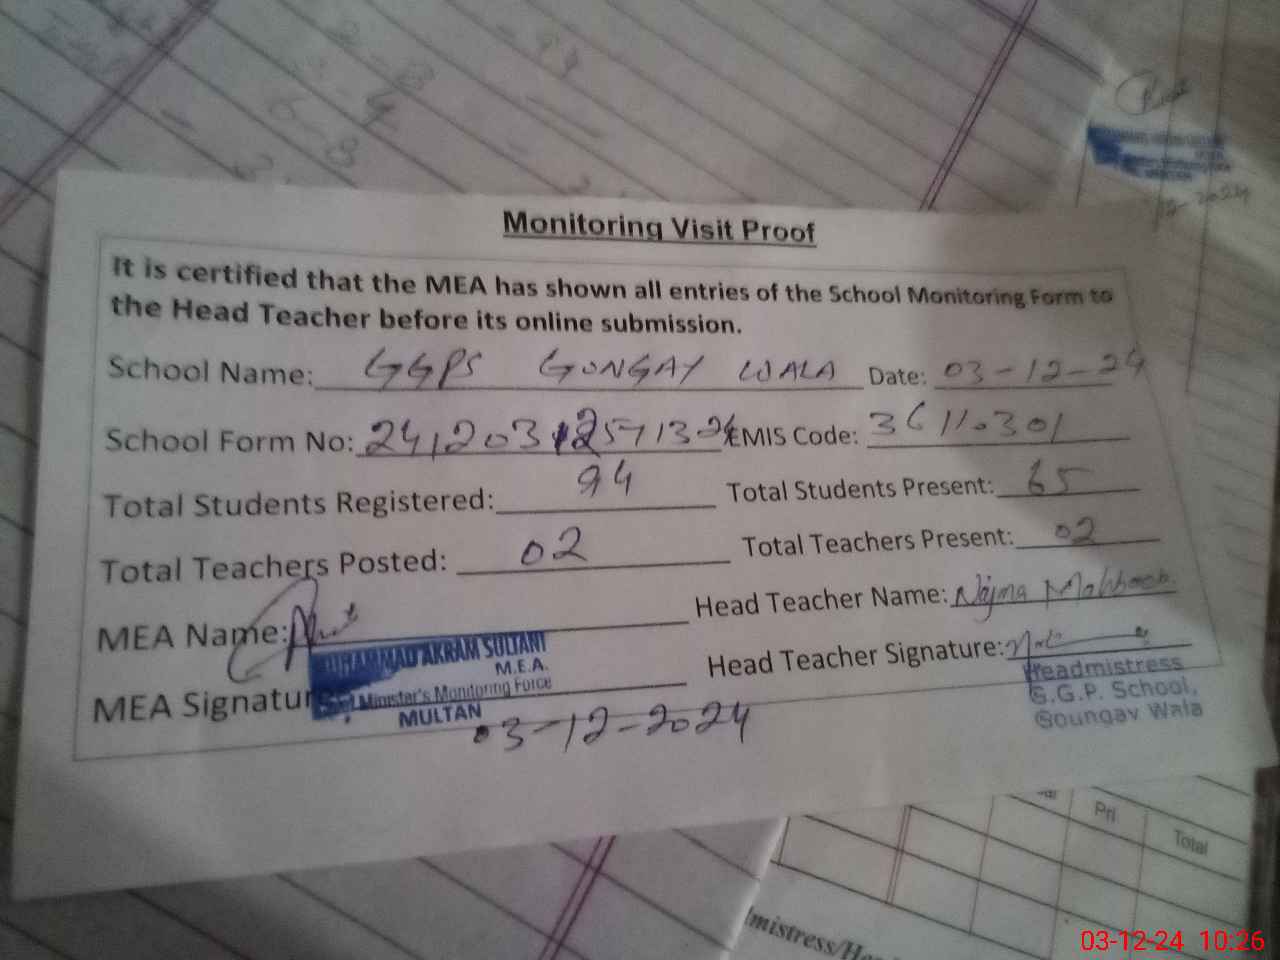 Monitoring Visit Proof
It is certified that the MEA has shown all entries of the School Monitoring Form to
the Head Teacher before its online submission.
School Name: GGPS GONGAY WALA Date: 03-12-24
School Form No: EMIS Code: 36110301
Total Students Registered: 94 Total Students Present: 65
Total Teachers Posted: 02 Total Teachers Present: 02
MEA Name: Head Teacher Name: Najma Mahboob
MEA Signature: Head Teacher Signature:
MUHAMMAD AKRAM SULTANI
M.E.A.
Minister's Monitoring Force
MULTAN
03-12-2024
Headmistress
G.G.P. School,
Goungay Wala
Pri
Total
03-12-24 10:26